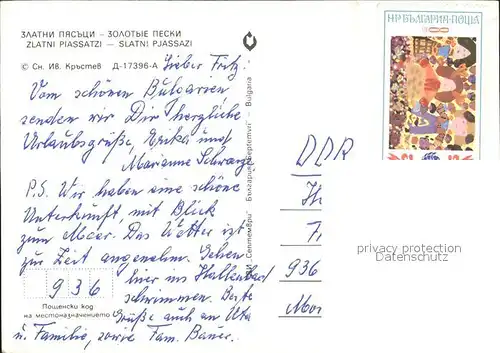 ЗЛАТНИ ПЯСЪЦИ – ЗОЛОТЫЕ ПЕСКИ
ZLATNI PIASSATZI — SLATNI PJASSAZI
© Сн. Ив. Кръстев Д-17396-А
Lieber Fritz!
Vom schönen Bulgarien
senden wir Dir herzliche
Urlaubsgrüße, Erika und
Marianne Schwarze
P.S. Wir haben eine schöne
Unterkunft, mit Blick
zum Meer. Das Wetter ist
zur Zeit angenehm. Gehen
hier ins Hallenbad
schwimmen. Beste
Grüße auch an Uta
u. Familie, sowie Fam. Bauer.
936
Пощенски код
на местоназначението
"Септември" България Bulgaria
НР БЪЛГАРИЯ·ПОЩА
DDR
936
privacy protection
Datenschutz